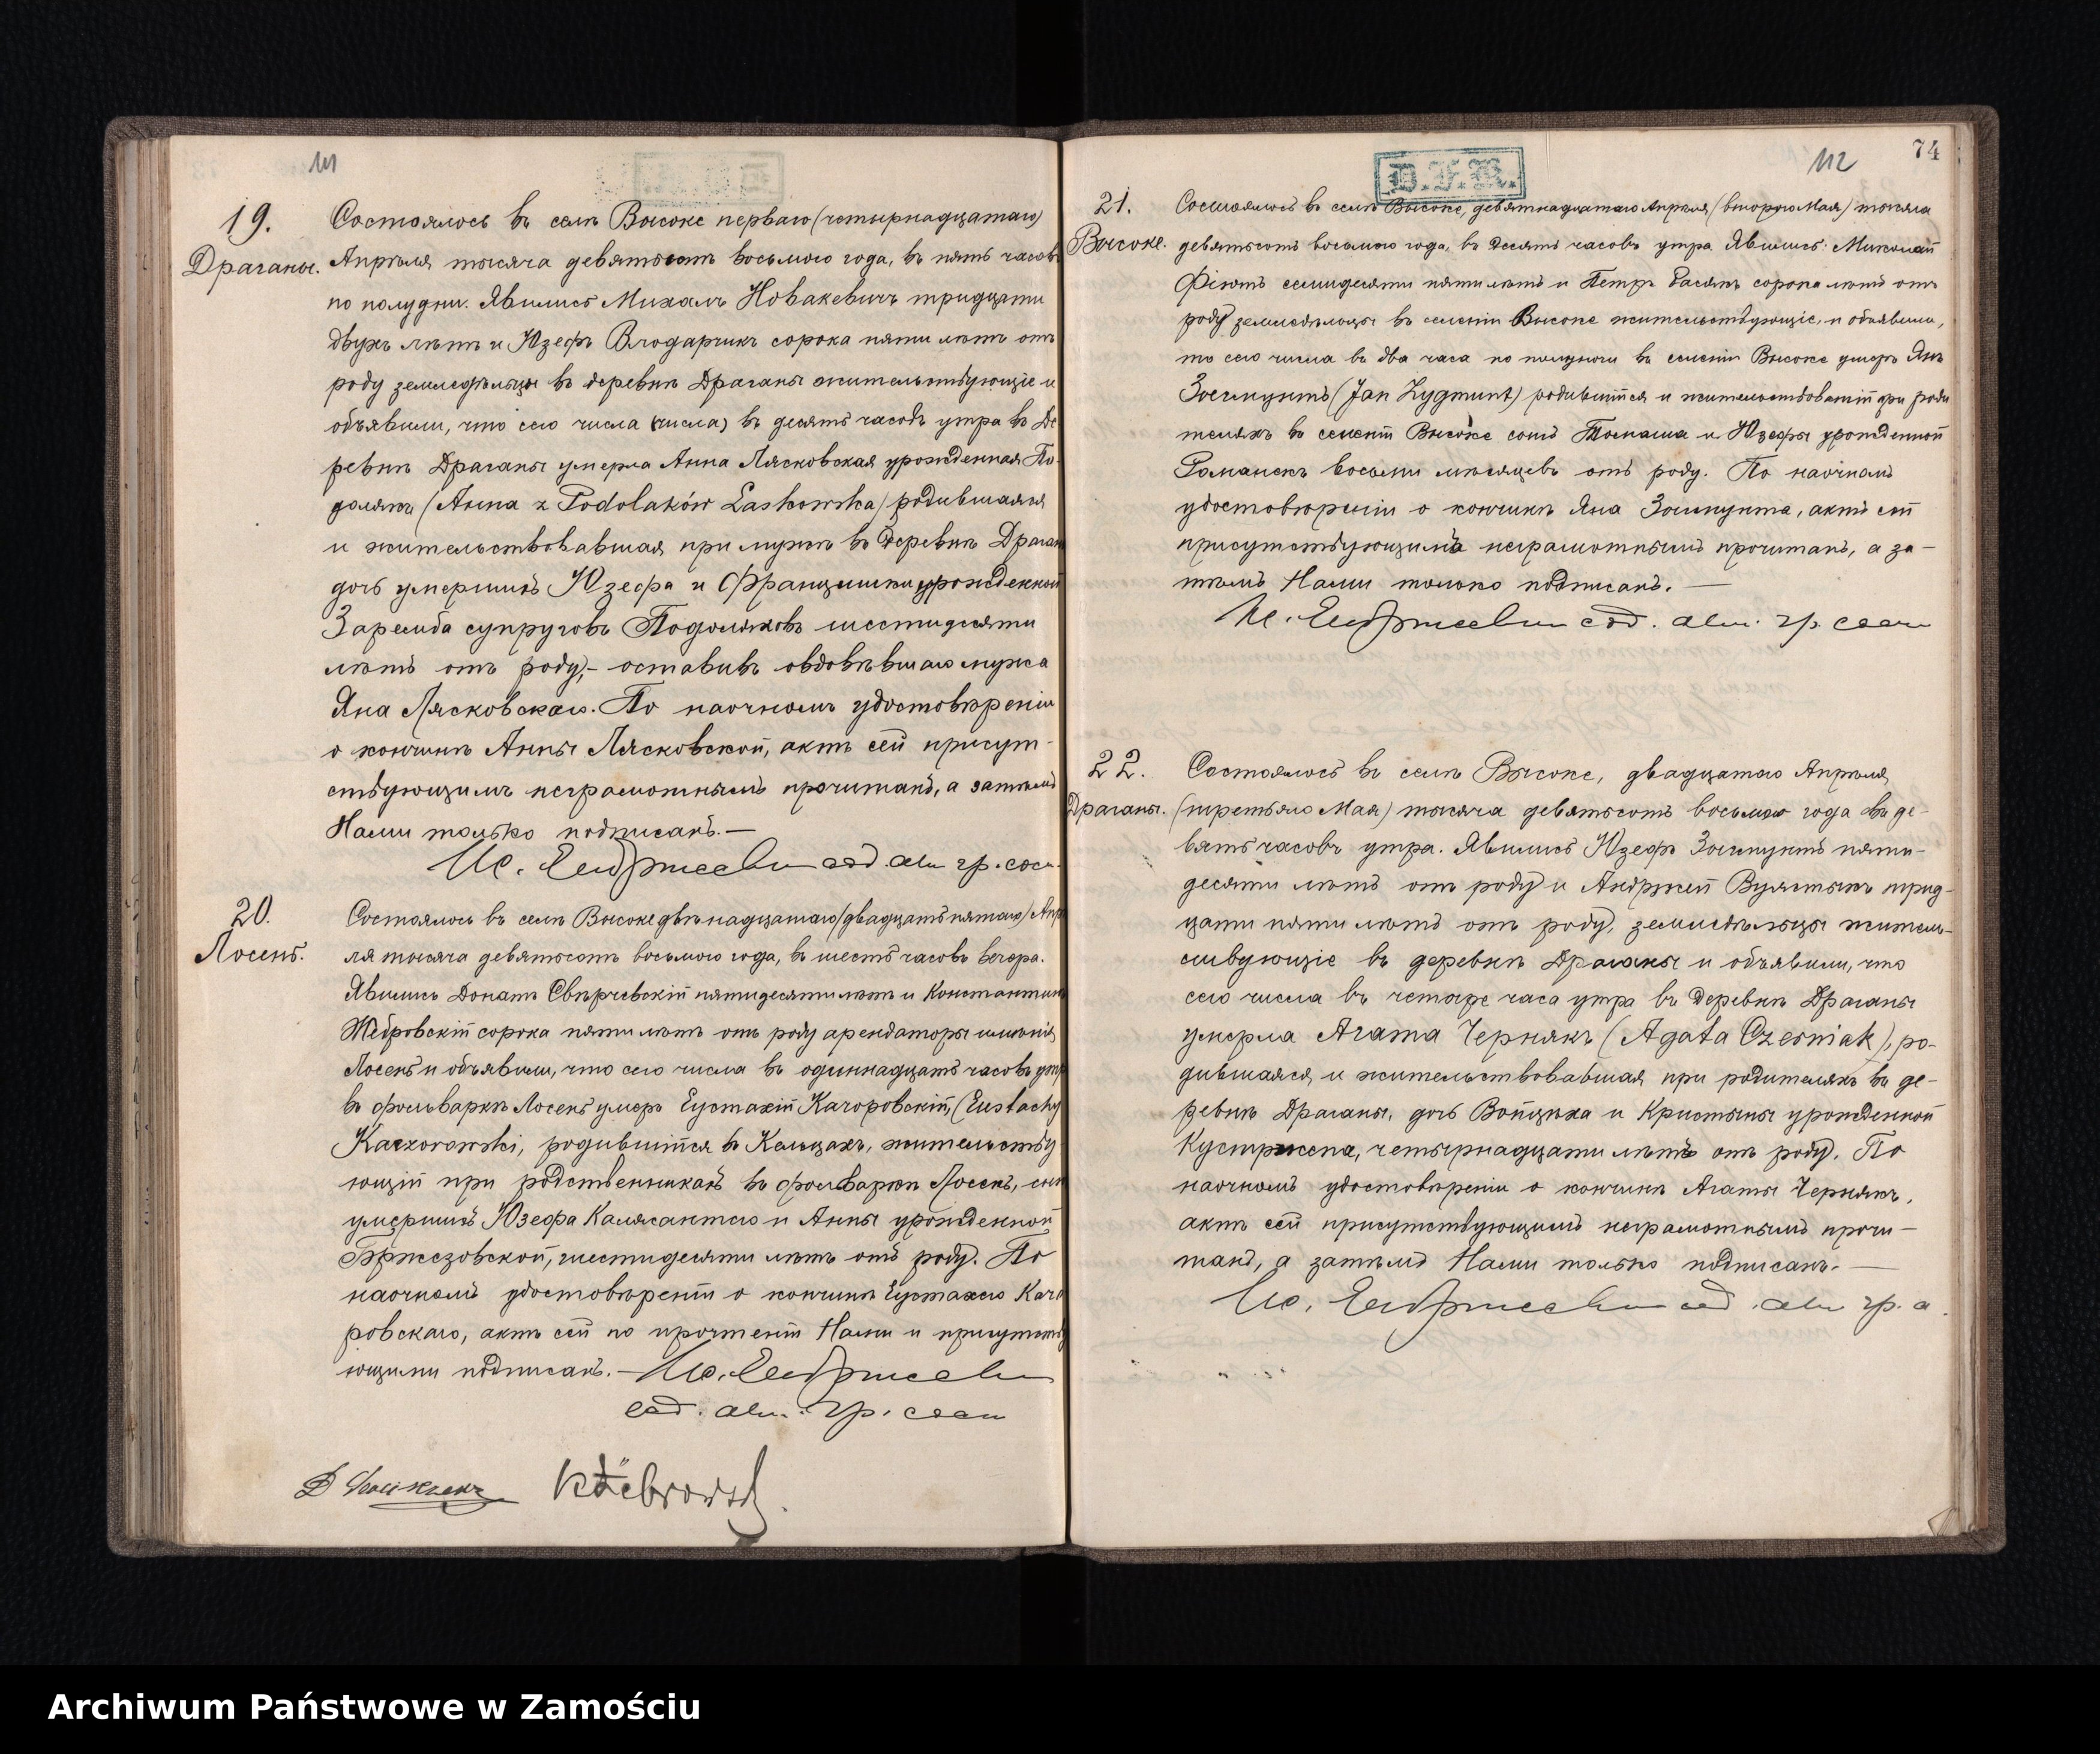 111
19.
Драганы.
Состоялось въ селѣ Высоке перваго (четырнадцатаго)
Апрѣля тысяча девятьсотъ восьмого года, въ пять часовъ
по полудни. Явились Михалъ Новакевичъ тридцати
двухъ лѣтъ и Юзефъ Влодарчикъ сорока пяти лѣтъ отъ
роду земледѣльцы въ деревнѣ Драганы жительствующіе и
объявили, что сего числа (числа) въ десять часовъ утра въ де
ревнѣ Драганы умерла Анна Лясковская урожденная По-
долякъ (Anna z Podolaków Laskowska) родившаяся
и жительствовавшая при мужѣ въ деревнѣ Драган
дочь умершихъ Юзефа и Францишки урожденной
Заремба супруговъ Подоляковъ шестидесяти
лѣтъ отъ роду,- оставивъ овдовѣвшаго мужа
Яна Лясковскаго. По наочномъ удостовѣреніи
о кончинѣ Анны Лясковской, актъ сей присут-
ствующимъ неграмотнымъ прочитанъ, а затѣмъ
Нами только подписанъ.—
сод. акт. гр. сост.
20.
Лосень.
Состоялось въ селѣ Высоке двѣнадцатаго (двадцать пятаго) Апр
ля тысяча девятьсотъ восьмого года, въ шесть часовъ вечера.
Явились Донатъ Свѣрчевскій пятидесяти лѣтъ и Константинъ
Жебровскій сорока пяти лѣтъ отъ роду арендаторы имѣнія
Лосень и объявили, что сего числа въ одиннадцать часовъ утр
въ фольваркѣ Лосень умеръ Еустахій Качоровскій, (Eustachy
Kaczorowski, родившійся въ Кельцахъ, жительству
ющій при родственникахъ въ фольваркѣ Лосень, сын
умершихъ Юзефа Калясантего и Анны урожденной
Бржезовской, шестидесяти лѣтъ отъ роду. По
наочномъ удостовѣреніи о кончинѣ Еустахего Качо
ровскаго, актъ сей по прочтеніи Нами и присутств
ющими подписанъ.—
сод. акт. гр. сост.
112
74
D.F.R.
21.
Высоке.
Состоялось въ селѣ Высоке, девятнадцатаго Апрѣля (второго Мая) тысяча
девятьсотъ восьмого года, въ десять часовъ утра. Явились: Миколай
Фіютъ семидесяти пяти лѣтъ и Петръ Басякъ сорока лѣтъ отъ
роду земледѣльцы въ селеніи Высоке жительствующіе, и объявили,
то сего числа въ два часа по полуночи въ селеніи Высоке умеръ Янъ
Зыгмунтъ (Jan Zygmunt) родившійся и жительствовавшій при роди
теляхъ въ селеніи Высоке сынъ Томаша и Юзефы урожденной
Романекъ восьми мѣсяцевъ отъ роду. По наочномъ
удостовѣреніи о кончинѣ Яна Зыгмунта, актъ сей
присутствующимъ неграмотнымъ прочитанъ, а за-
тѣмъ Нами только подписанъ.—
сод. акт. гр. сост.
22.
Драганы.
Состоялось въ селѣ Высоке, двадцатаго Апрѣля
(третьяго Мая) тысяча девятьсотъ восьмого года въ де-
вять часовъ утра. Явились Юзефъ Зыгмунтъ пяти-
десяти лѣтъ отъ роду и Андржей Вулястыкъ трид-
цати пяти лѣтъ отъ роду, земледѣльцы житель-
ствующіе въ деревнѣ Драганы и объявили, что
сего числа въ четыре часа утра въ деревнѣ Драганы
умерла Агата Чернякъ (Agata Czerniak), ро-
дившаяся и жительствовавшая при родителяхъ въ де-
ревнѣ Драганы, дочь Войцѣха и Кристыны урожденной
Кустржепа, четырнадцати лѣтъ отъ роду. По
наочномъ удостовѣреніи о кончинѣ Агаты Чернякъ,
актъ сей присутствующимъ неграмотнымъ прочи-
танъ, а затѣмъ Нами только подписанъ.—
сод. акт. гр. с.
Archiwum Państwowe w Zamościu